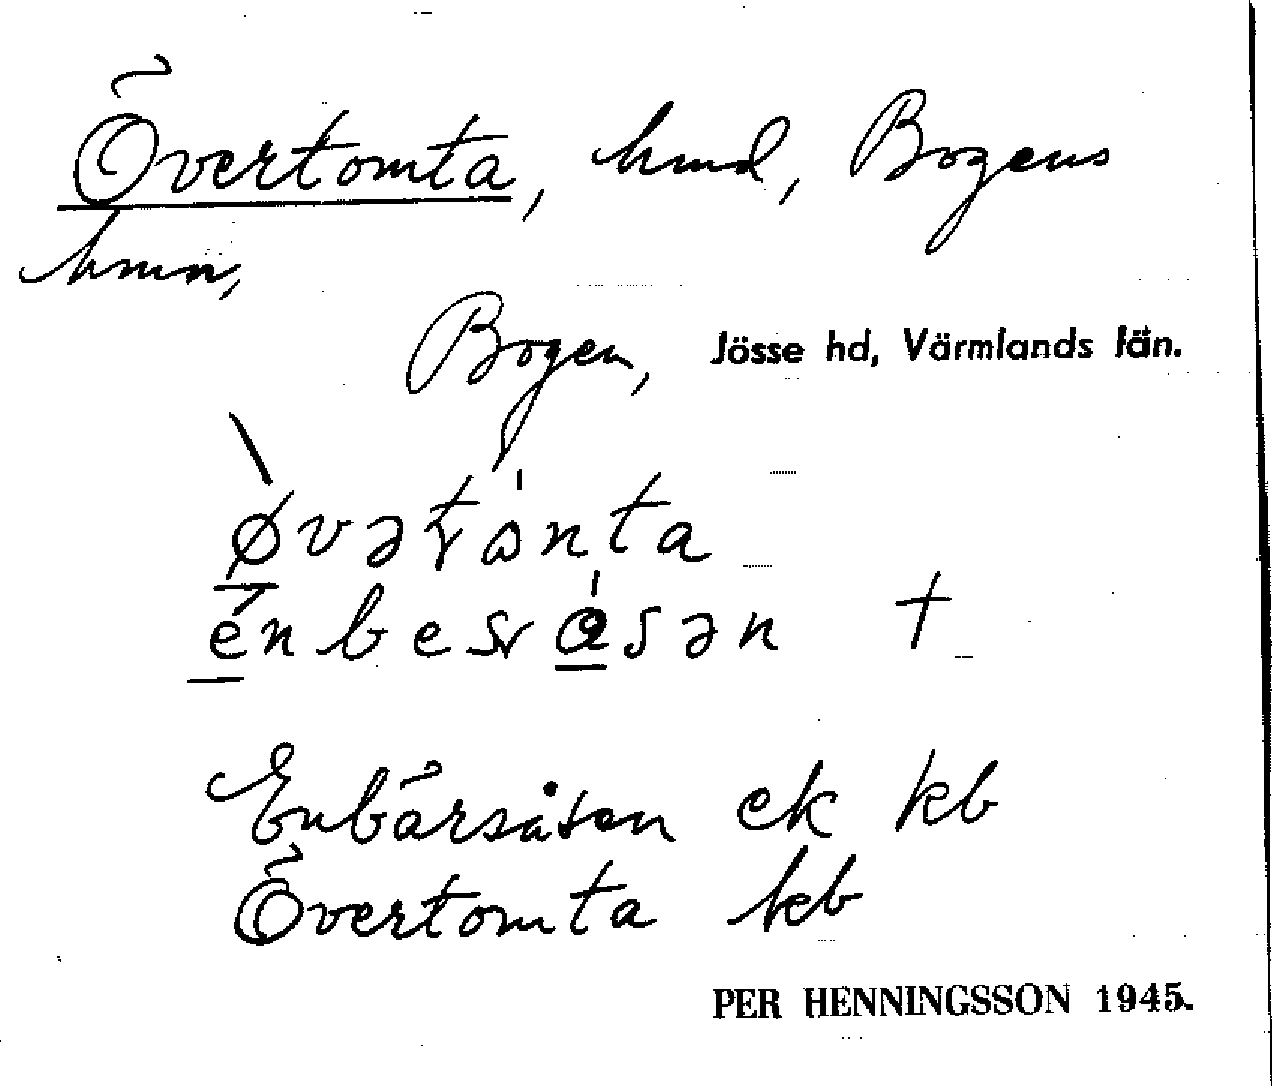 Övertomta, hmd, Bogens
hmn,
Bogen, Jösse hd, Värmlands län.
øvətɒnta
enbesɒsən †
Enbärsåsen ek kb
Övertomta kb
PER HENNINGSSON 1945.